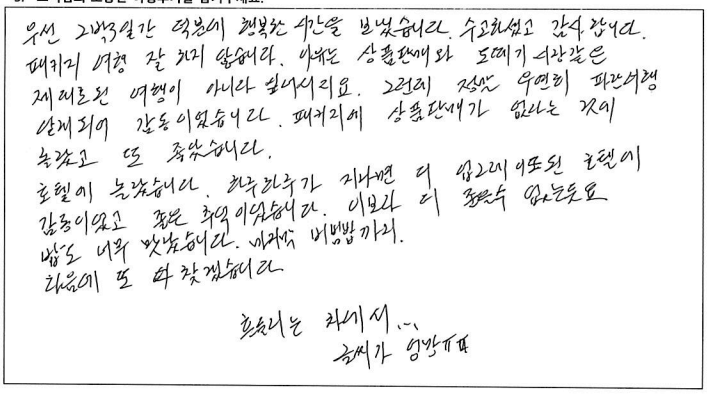 우선 2박3일간 덕분에 행복한 시간을 보냈습니다. 수고하셨고 감사합니다.
패키지 여행 잘 하지 않습니다. 이유는 상품판매와 도떼기시장같은
제대로된 여행이 아니다 싶어서리요. 그런데 정말 우연히 파란여행
알게되어 감동이었습니다. 패키지에 상품판매가 없다는 것에
놀랐고 또 좋았습니다.
호텔에 놀랐습니다. 하루하루가 지나면 더 업그레이드된 호텔에
감동이었고 좋은 추억이었습니다. 이보다 더 좋을수 없는듯요
밥도 너무 맛났습니다. 마지막 비빔밥까지.
다음에 또 다 찾겠습니다
흔들리는 차에서...
글씨가 엉망ㅠㅠ